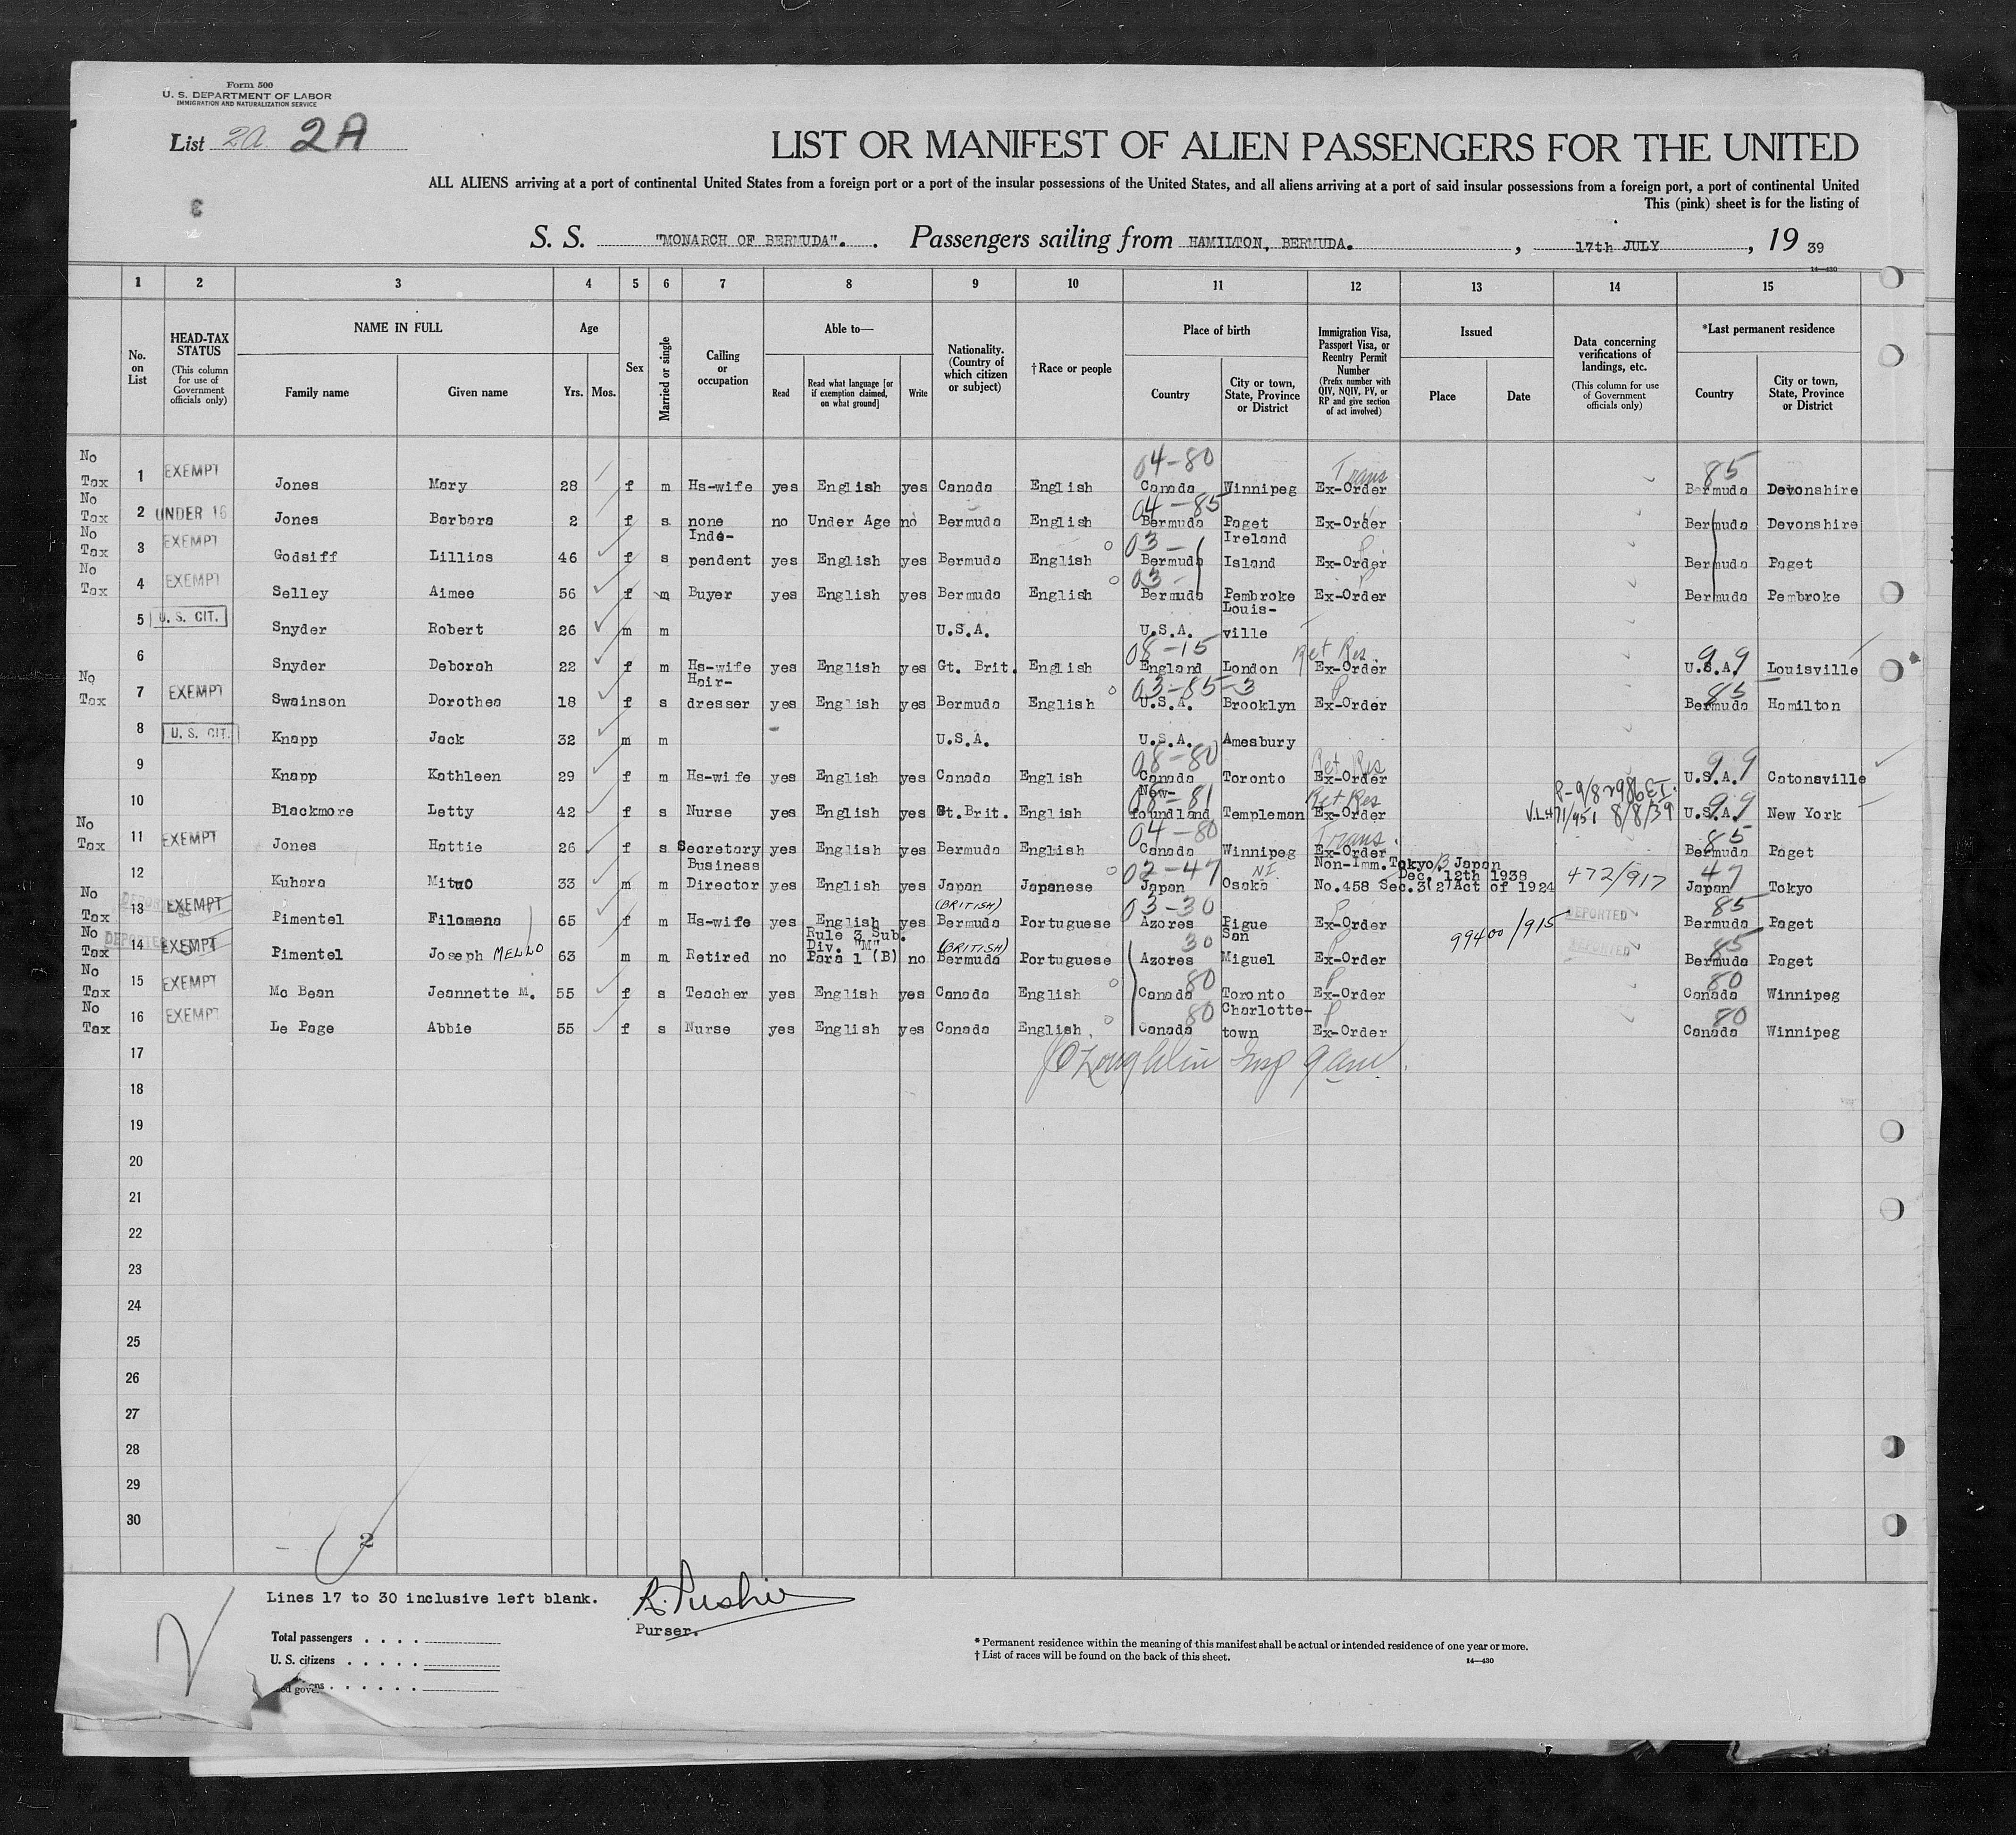 Form 500
U. S. DEPARTMENT OF LABOR
IMMIGRATION AND NATURALIZATION SERVICE
List 2A. 2A
LIST OR MANIFEST OF ALIEN PASSENGERS FOR THE UNITED
ALL ALIENS arriving at a port of continental United States from a foreign port or a port of the insular possessions of the United States, and all aliens arriving at a port of said insular possessions from a foreign port, a port of continental United
This (pink) sheet is for the listing of
3
S. S. "MONARCH OF BERMUDA". Passengers sailing from HAMILTON, BERMUDA. , 17th JULY , 19 39
14—430
1 2 3 4 5 6 7 8 9 10 11 12 13 14 15
No. on List
HEAD-TAX STATUS (This column for use of Government officials only)
NAME IN FULL
Family name Given name
Age
Yrs. Mos.
Sex
Married or single
Calling or occupation
Able to—
Read Read what language [or if exemption claimed, on what ground] Write
Nationality. (Country of which citizen or subject)
†Race or people
Place of birth
Country City or town, State, Province or District
Immigration Visa, Passport Visa, or Reentry Permit Number (Prefix number with QIV, NQIV, PV, or RP and give section of act involved)
Issued
Place Date
Data concerning verifications of landings, etc. (This column for use of Government officials only)
*Last permanent residence
Country City or town, State, Province or District
04-80 Trans 85
No Tax 1 EXEMPT Jones Mary 28 f m Hs-wife yes English yes Canada English Canada Winnipeg Ex-Order Bermuda Devonshire
04-85
No Tax 2 UNDER 16 Jones Barbara 2 f s none no Under Age no Bermuda English Bermuda Paget Ex-Order Bermuda Devonshire
03-
No Tax 3 EXEMPT Godsiff Lillias 46 f s Inde-pendent yes English yes Bermuda English Bermuda Ireland Island Ex-Order Bermuda Paget
03-
No Tax 4 EXEMPT Selley Aimee 56 f m Buyer yes English yes Bermuda English Bermuda Pembroke Ex-Order Bermuda Pembroke
5 U. S. CIT. Snyder Robert 26 m m U.S.A. U.S.A. Louis-ville
08-15 Ret Res. 99
6 Snyder Deborah 22 f m Hs-wife yes English yes Gt. Brit. English England London Ex-Order U.S.A. Louisville
03-85-3 P 85
No Tax 7 EXEMPT Swainson Dorothea 18 f s Hair-dresser yes English yes Bermuda English U.S.A. Brooklyn Ex-Order Bermuda Hamilton
8 U. S. CIT. Knapp Jack 32 m m U.S.A. U.S.A. Amesbury
08-80 Ret Res 99
9 Knapp Kathleen 29 f m Hs-wife yes English yes Canada English Canada Toronto Ex-Order U.S.A. Catonsville
08-81 Ret Res 8/8/39 99
10 Blackmore Letty 42 f s Nurse yes English yes Gt.Brit. English New-foundland Templeman Ex-Order U.S.A. New York
04-80 Trans. 85
No Tax 11 EXEMPT Jones Hattie 26 f s Secretary yes English yes Bermuda English Canada Winnipeg Ex-Order Bermuda Paget
02-47 NI 472/917 47
12 Kuhara Mituo 33 m m Business Director yes English yes Japan Japanese Japan Osaka Non-Imm. No.458 Sec.3(2)Act of 1924 Tokyo, Japan Dec. 12th 1938 Japan Tokyo
(BRITISH) 03-30 P DEPORTED 85
No Tax 13 DEPORTED EXEMPT Pimentel Filomena 65 f m Hs-wife yes English yes Bermuda Portuguese Azores Pigue Ex-Order 99400/915 Bermuda Paget
(BRITISH) 30 P DEPORTED 85
No Tax 14 DEPORTED EXEMPT Pimentel Joseph MELLO 63 m m Retired no Rule 3 Sub. Div. "M" Para 1 (B) no Bermuda Portuguese Azores San Miguel Ex-Order Bermuda Paget
80 P 80
No Tax 15 EXEMPT Mc Bean Jeannette M. 55 f s Teacher yes English yes Canada English Canada Toronto Ex-Order Canada Winnipeg
80 P 80
No Tax 16 EXEMPT Le Page Abbie 55 f s Nurse yes English yes Canada English Canada Charlotte-town Ex-Order Canada Winnipeg
17
18
19
20
21
22
23
24
25
26
27
28
29
30
2
Lines 17 to 30 inclusive left blank.
Purser.
Total passengers
U. S. citizens
* Permanent residence within the meaning of this manifest shall be actual or intended residence of one year or more.
† List of races will be found on the back of this sheet.
14—430